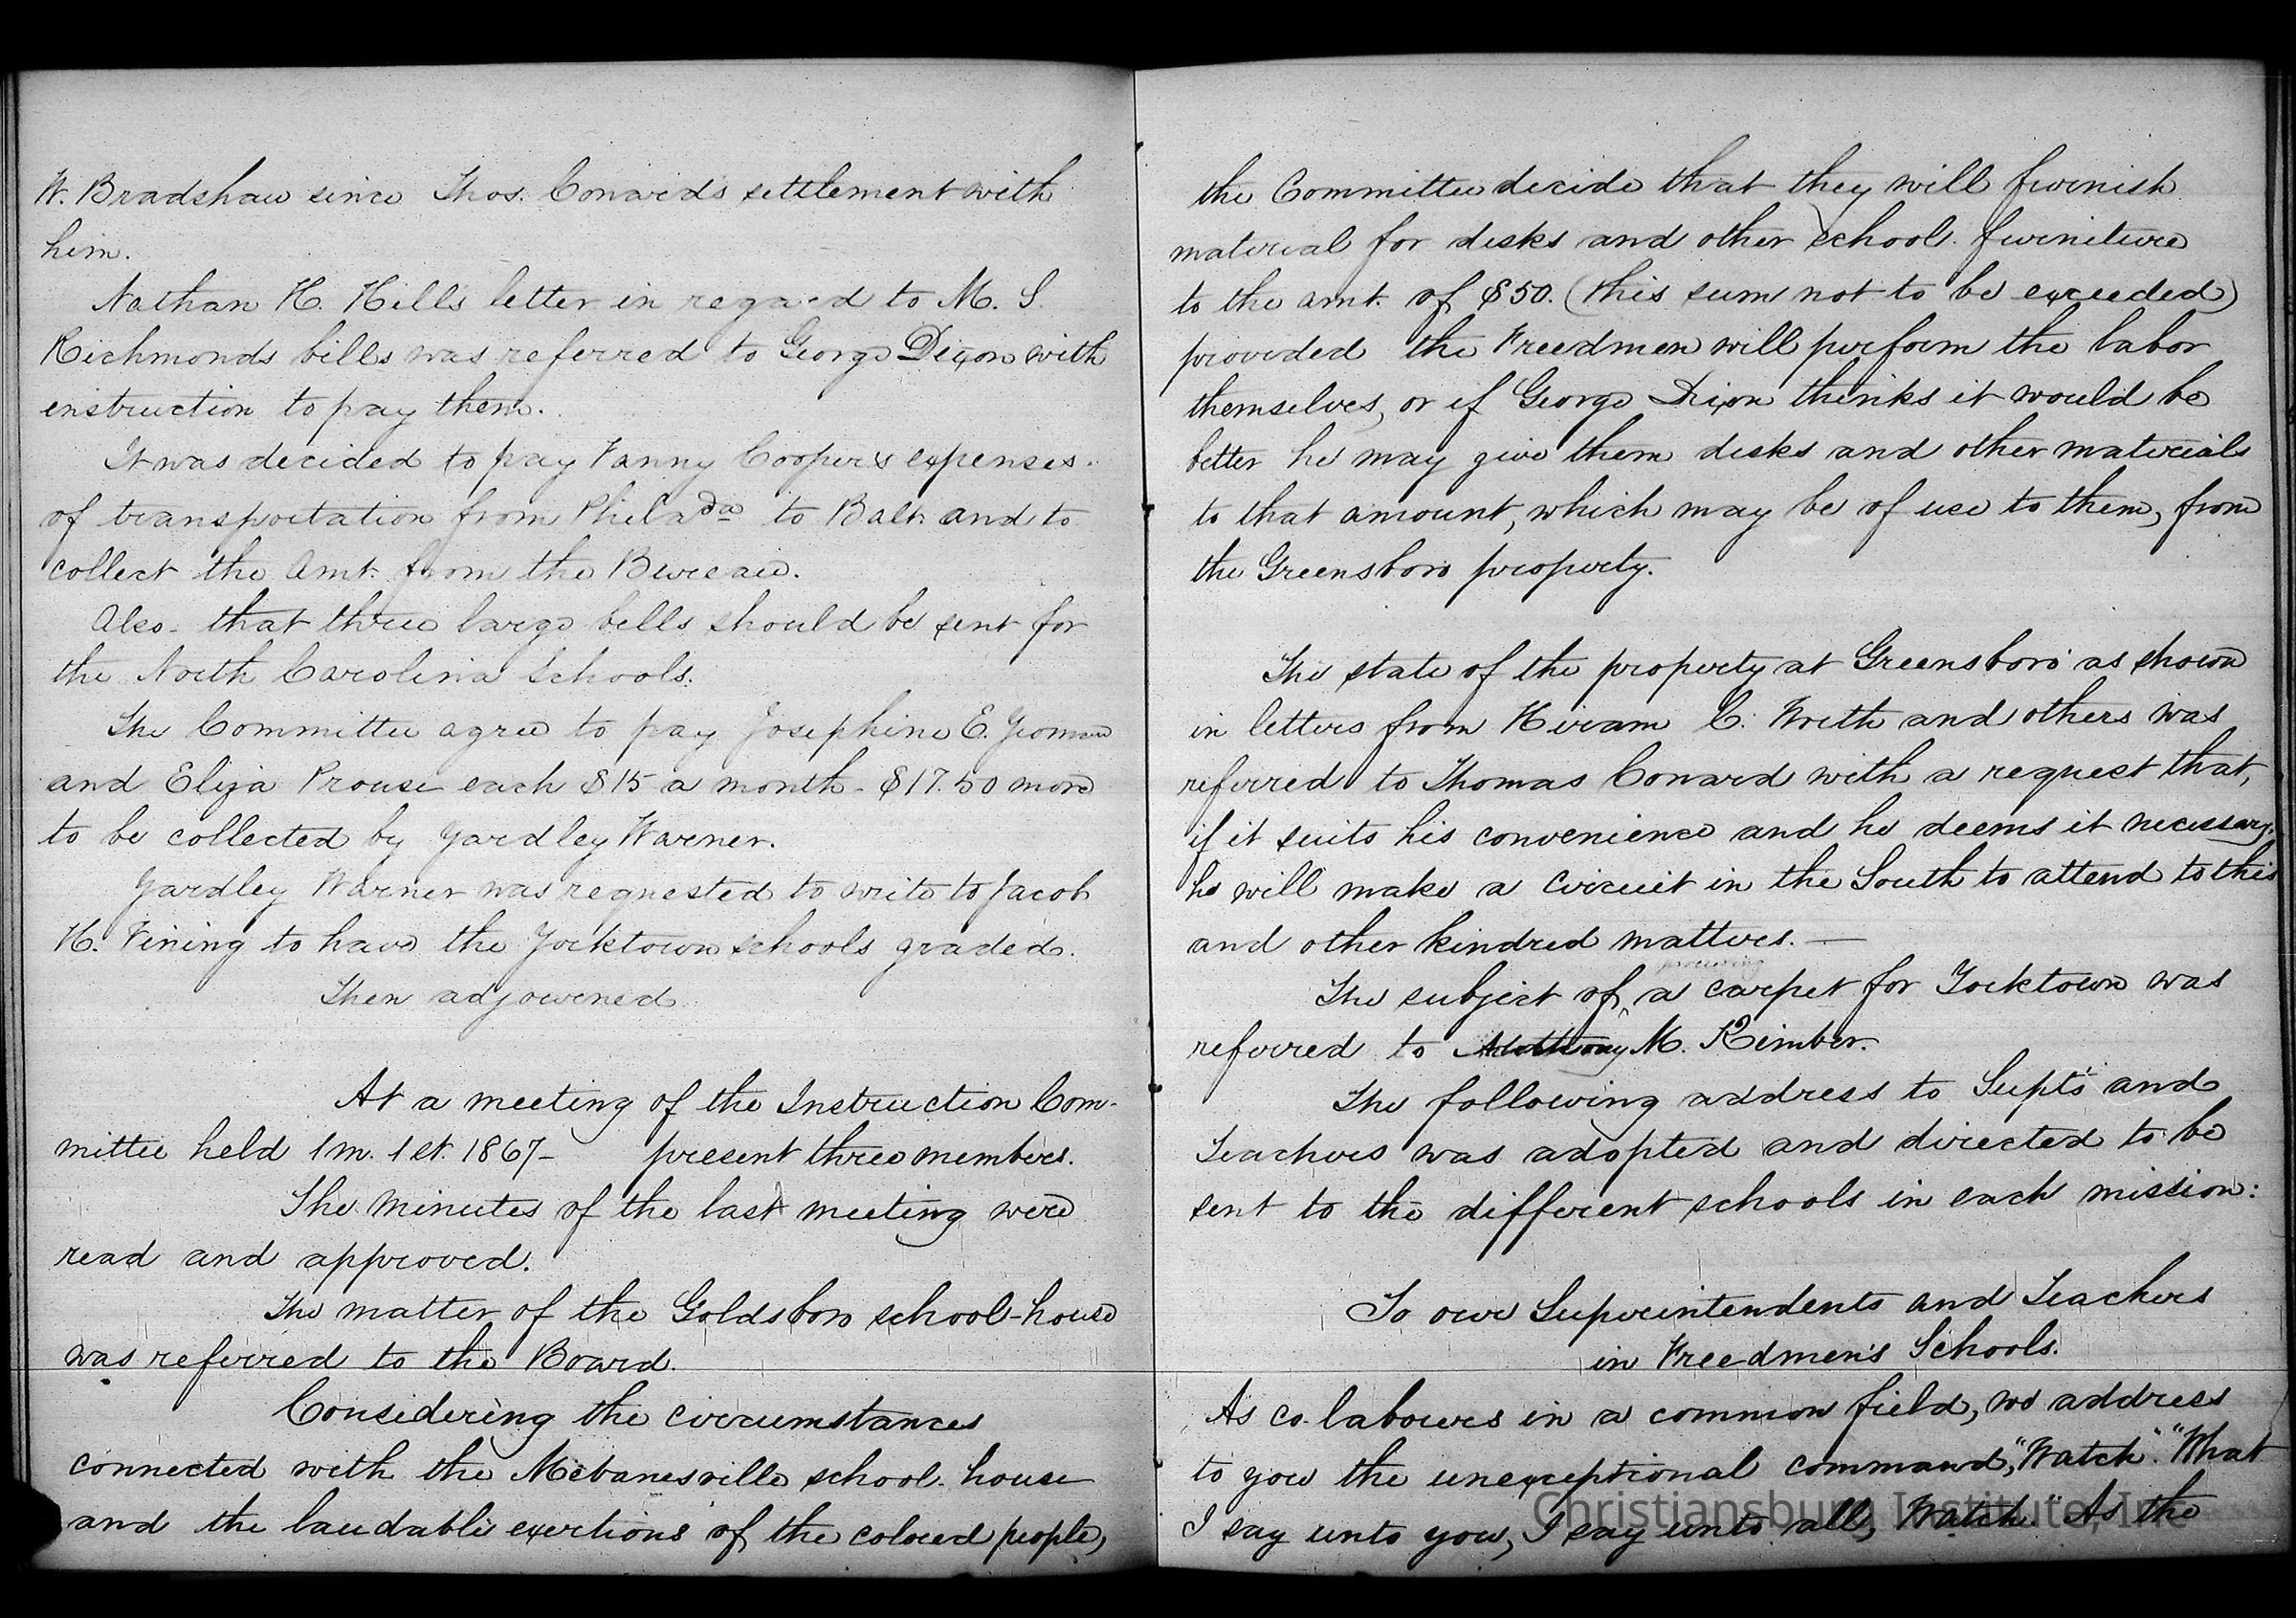 W. Bradshaw since Thos. Conards settlement with
him.
Nathan H. Hills letter in regard to M. S.
Richmonds bills was referred to George Dixon with
instruction to pay them.
It was decided to pay Fanny Coopers expenses
of transportation from Philada to Balt. and to
collect the amt. from the Bureau.
Also - that three large bells should be sent for
the North Carolina Schools.
The Committee agree to pay Josephine E. Yeoman
and Eliza Prouse each $15 a month - $17.50 more
to be collected by Yardley Warner.
Yardley Warner was requested to write to Jacob
H. Vining to have the Yorktown schools graded.
Then adjourned.
At a meeting of the Instruction Com-
mittee held 1 m. 1st. 1867 - present three members.
The minutes of the last meeting were
read and approved.
The matter of the Goldsboro school-house
was referred to the Board.
Considering the circumstances
connected with the Mebanesville school-house
and the laudable exertions of the colored people,
the Committee decide that they will furnish
material for desks and other school furniture
to the amt. of $50. (this sum not to be exceeded)
provided the Freedmen will perform the labor
themselves, or if George Dixon thinks it would be
better he may give them desks and other materials
to that amount, which may be of use to them, from
the Greensboro property.
The state of the property at Greensboro as shown
in letters from Hiram C. Worth and others was
referred to Thomas Conard with a request that,
if it suits his convenience and he deems it necessary,
he will make a circuit in the South to attend to this
and other kindred matters. —
The subject of procuring a carpet for Yorktown was
referred to Anthony M. Kimber.
The following address to Supts and
Teachers was adopted and directed to be
sent to the different schools in each mission:
To our Superintendents and Teachers
in Freedmen's Schools.
As co-labourers in a common field, we address
to you the unexceptional command, "Watch". "What
I say unto you, I say unto all, Watch." As the
Christiansburg Institute, Inc